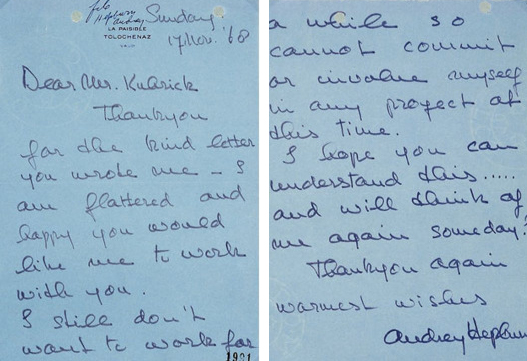 file
Hepburn
Audrey
Sunday.
LA PAISIBLE
TOLOCHENAZ
VAUD
17 Nov. '68
Dear Mr. Kubrick
Thankyou
for the kind letter
you wrote me – I
am flattered and
happy you would
like me to work
with you.
I still don't
want to work for
1991
a while so
cannot commit
or involve myself
in any project at
this time.
I hope you can
understand this.....
and will think of
me again someday?
Thankyou again
warmest wishes
Audrey Hepburn